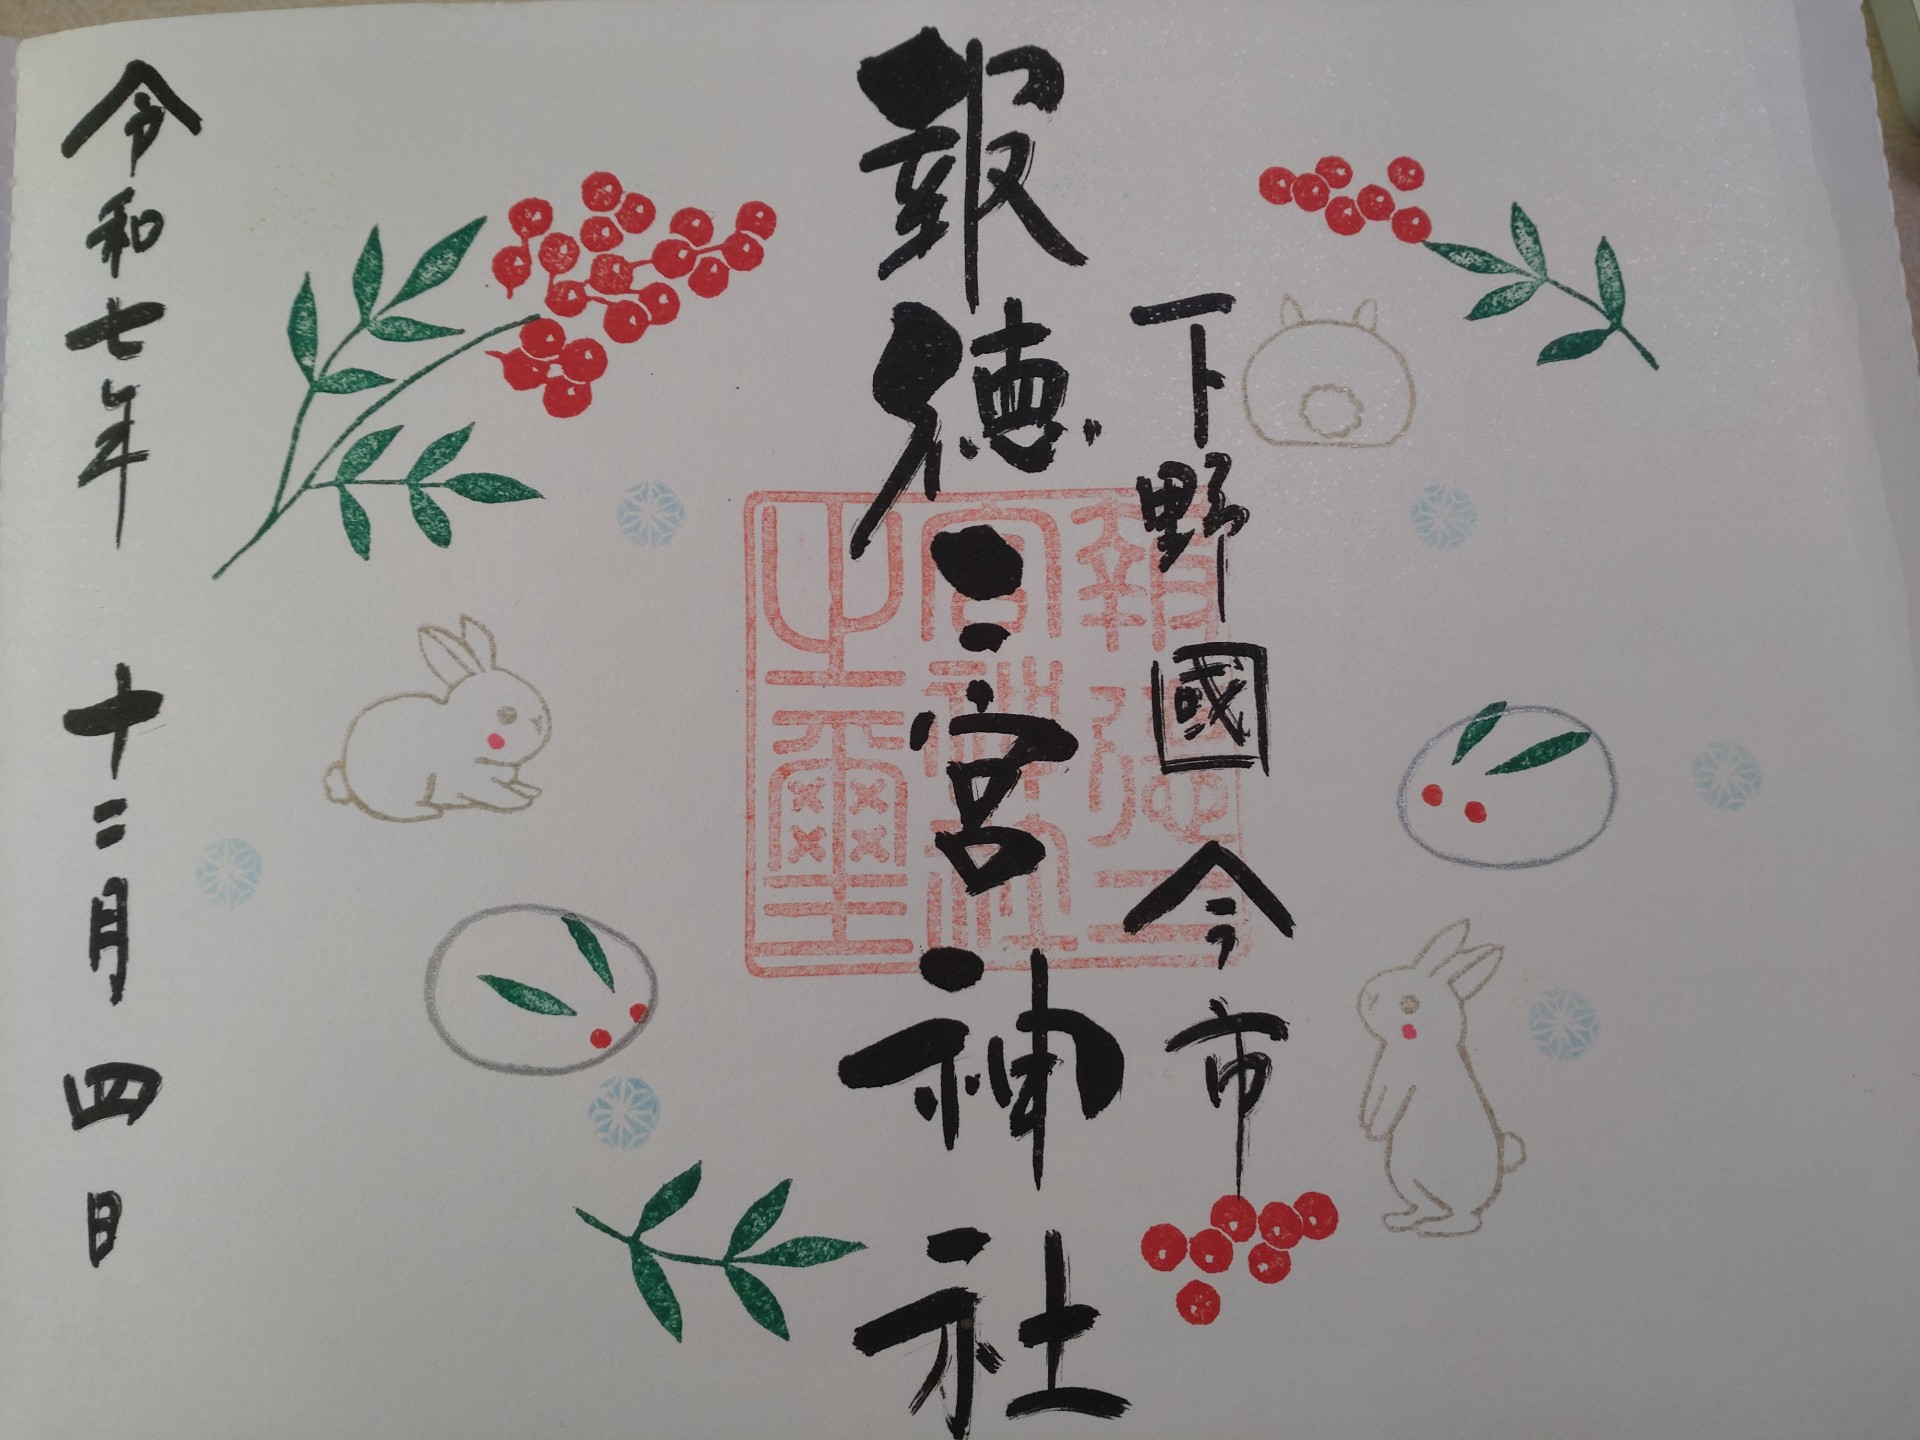 下野國今市
報徳二宮神社
報徳二宮神社之璽
令和七年 十二月四日